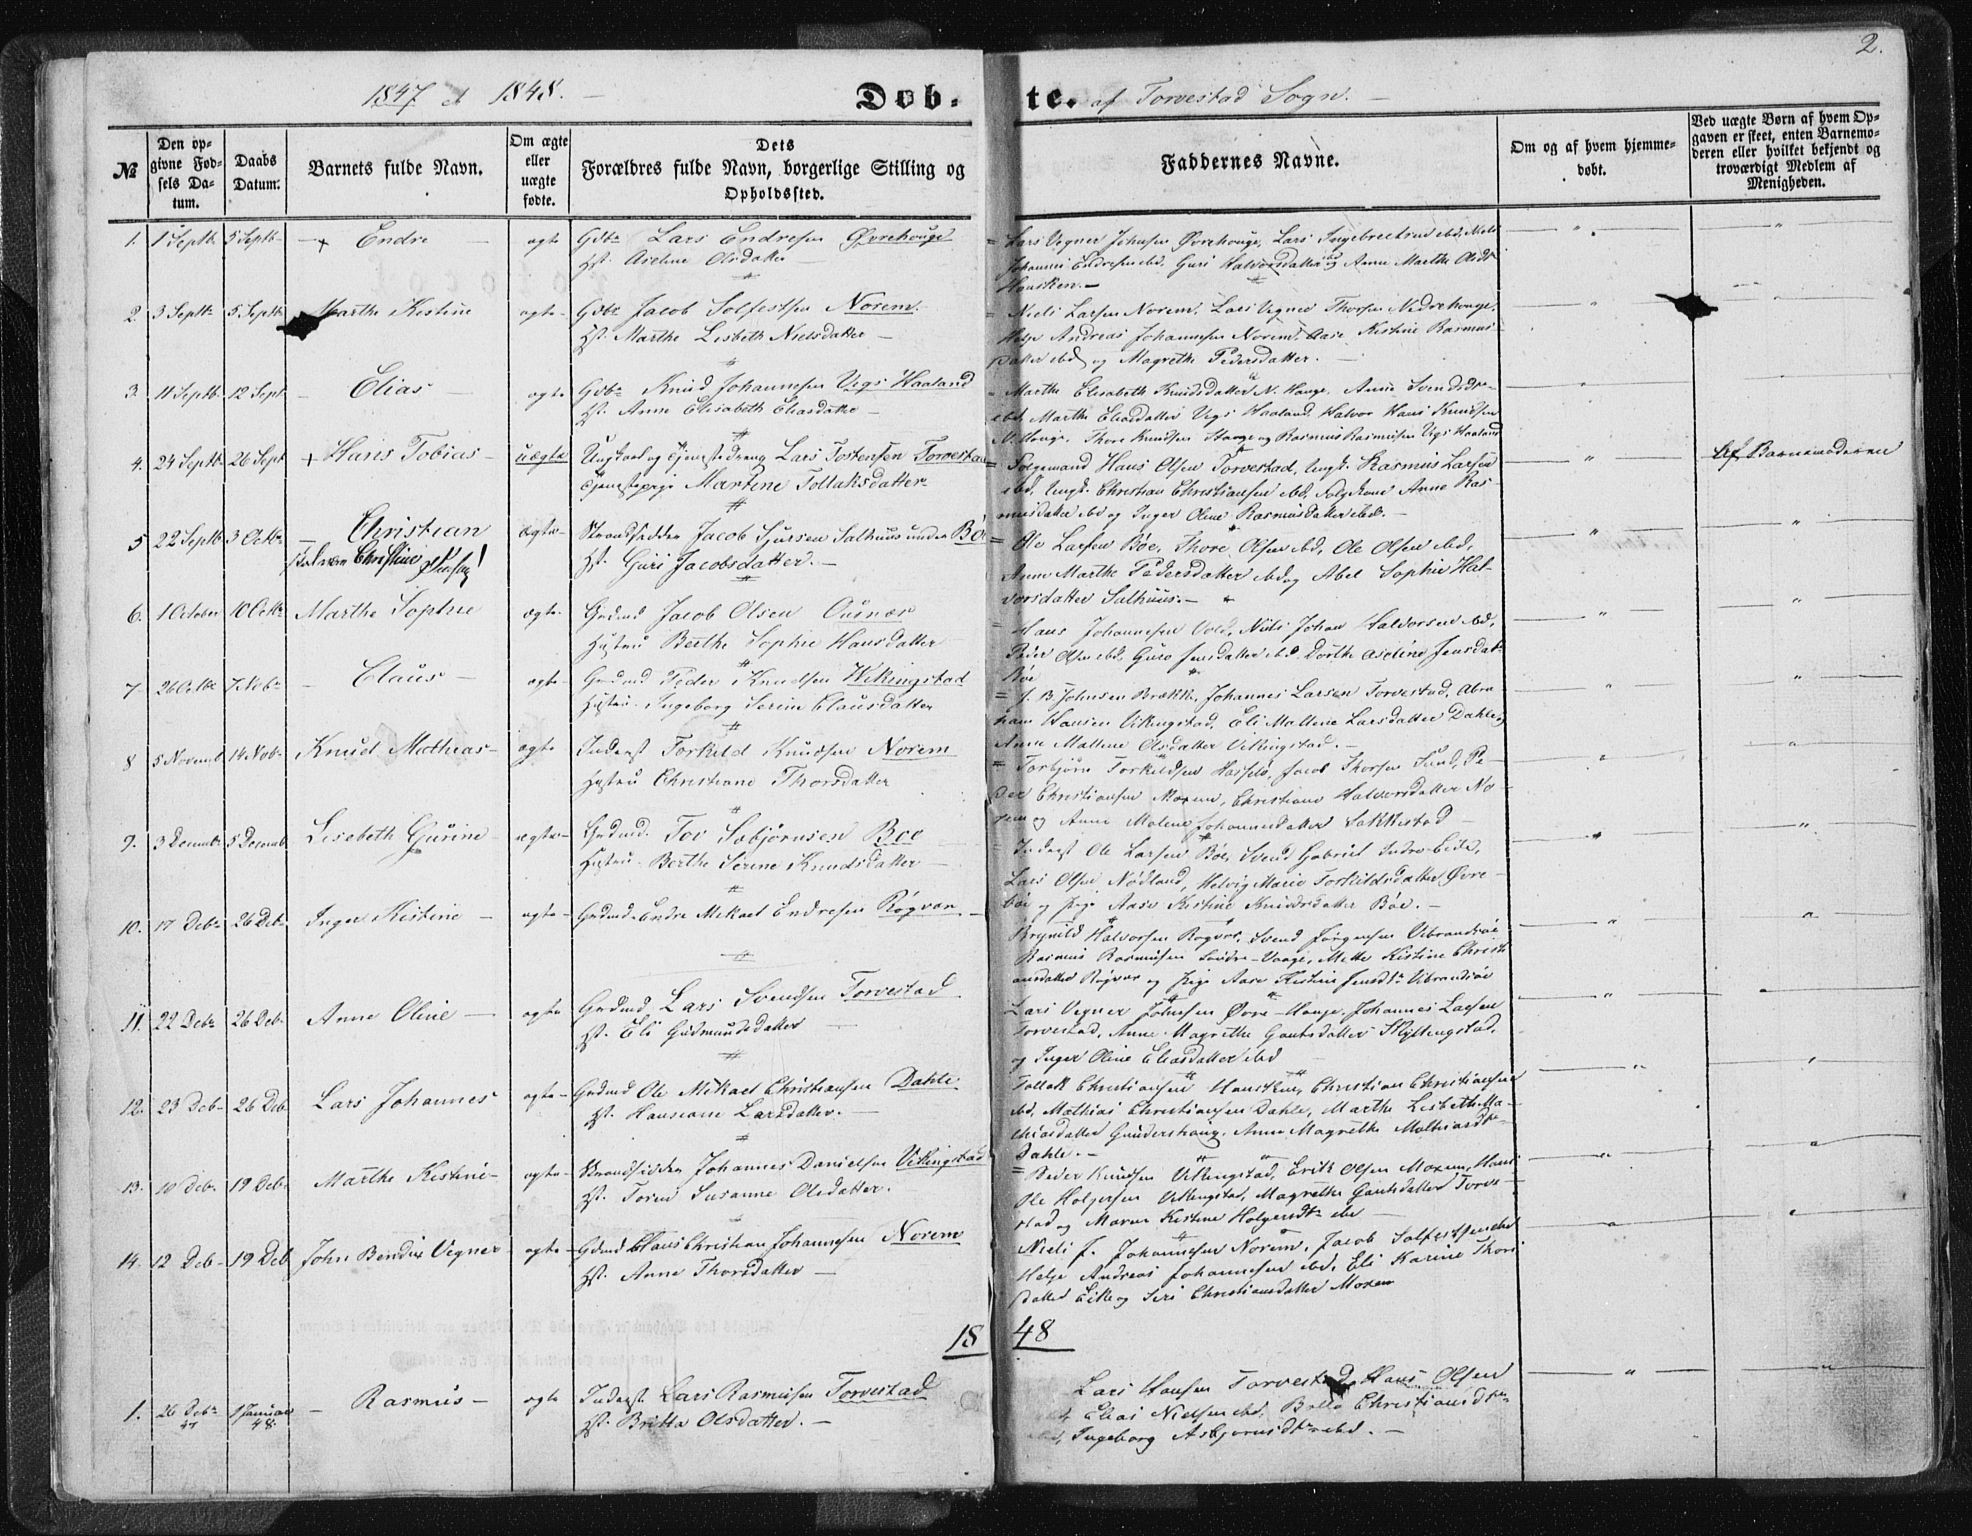 2.
1847 et 1848. Døb- te. af Torvestad Sogn.
№ | Den opgivne Fødsels Datum. | Daabs Datum. | Barnets fulde Navn. | Om ægte eller uægte fødte. | Dets Forældres fulde Navn, borgerlige Stilling og Opholdssted. | Faddernes Navne. | Om og af hvem hjemmedøbt. | Ved uægte Børn af hvem Opgaven er skeet, enten Barnemoderen eller hvilket bekjendt og troværdigt Medlem af Menigheden.
1. 1 Septb. 5 Septb. + Endre ægte Gdbr Lars Endresen Øvrehouge
Hst. Aseline Olsdatter
Lars Vegner Johnsen Øvrehouge, Lars Ingebretsen ibd, Niels
Johannes Endresen ibd. Guri Halvorsdatter ibd og Anne Marthe Olsdr
Housken.
2. 3 Septbr 5. Septb Marthe Kistine ægte Gdbr Jacob Solfestsen Norem.
Hst. Marthe Lisbeth Nielsdatter
Niels Larsen Norem, Lars Vegner Thorsen Nedrehouge,
Helje Andreas Johannesen Norem, Aase Kistine Rasmus-
datter ibd og Magrethe Pedersdatter.
3. 11 Septb. 12 Sept Elias ægte Gdbr Knud Johannesen Vigs Haaland
Hst. Anne Elisabeth Eliasdatter
Marthe Elisabeth Knudsdatter N. Houge, Anne Svendsdr
ibd Marthe Eliasdatter Vigs Haaland, Halvor Hans Knudsen
N. Houge, Thore Knudsen Hauge og Rasmus Rasmusen Vigs Haaland
4. 24 Septb 26 Sept + Hans Tobias uægte Ungkarl og tjenestedreng Lars Tostensen Torvestad
tjenestepige Martine Tollaksdatter
Folgemand Hans Olsen Torvestad, Ungk. Rasmus Larsen
ibd, Ungk. Christian Christiansen ibd, Folgkone Anne Ras-
musdatter ibd og Inger Oline Rasmusdatter ibd.
Af Barnemoderen
5 22 Septb 3 Octbr Christian ægte Strandsidder Jacob Sjursen Salhuus under Bøe
skal være Christine
Hst. Guri Jacobsdatter.
Ole Larsen Bøe, Thore Olsen ibd, Ole Olsen ibd,
Anne Marthe Pedersdatter ibd og Abel Sophie Hal-
vorsdatter Salhuus.
6. 1 October 10 Octbr Marthe Sophie ægte Grdmd Jacob Olsen Ousnæs
Hustru Berthe Sophie Hansdatter
Hans Johannesen Vold, Niels Johan Halvorsen ibd,
Peder Olsen ibd, Guro Jensdatter ibd. Dorthe Aseline Jensdatr
Bøe
7 26 Octbr 7 Nobr Claus ægte Grdmd Peder Knudsen Wikingstad
Hustru. Ingeborg Serine Clausdatter
J. B Johnsen Brække, Johannes Larsen Torvestad, Abra
ham Hansen Vikingstad, Eli Mallene Larsdatter Dahle og
Anne Mallene Olsdatter Vikingstad.
8 5 Novemb 14 Nob Knud Mathias ægte Inderst Torkild Knudsen Norem
Hustru Christiane Thorsdatter
Torbjørn Torkildsen Hasseløe, Jacob Thorsen Sund, Pe-
der Christiansen Moxem, Christiane Halvorsdatter No-
rem og Anne Malene Johannesdatter Sakkestad
9. 3 Decembr 5 Decemb Lisebeth Gurine ægte Grdmd. Tov Sebjørnsen Boe
Hustru. Berthe Serine Knudsdatter
Inderst Ole Larsen Bøe, Svend Gabriel Indre-Eide,
Lars Olsen Nødland, Helvig Marie Torkildsdatter Øvre-
bøe og pige Aase Kistine Knudsdatter Bøe.
10. 17 Debr 26 Debr Inger Kistine ægte Grdmd. Endre Mikael Endresen Røgvær
Brynild Halvorsen Røgvær, Svend Jørgensen Vibrandsøe
Rasmus Rasmusen Søndre-Vaage, Mette Kistine Christi
ansdatter Røgvær og pige Aase Kistine Jensdtr Vibrandsøe
11. 22 Debr 26 Deb Anne Oline ægte Grdmd Lars Svendsen Torvestad
Hst. Eli Gudmundsdatter
Lars Vegner Johnsen Øvre-Houge, Johannes Larsen
Torvestad, Anne Magrethe Gautsdatter Skjeltengstad,
og Inger Oline Eliasdatter ibd
12. 23 Deb 26 Deb Lars Johannes ægte Grdmd Ole Mikael Christiansen Dahle
Hst. Hansiane Larsdatter.
Tollak Christiansen Housken, Christian Christiansen
ibd, Mathias Christiansen Dahle, Marthe Lisbeth Ma-
thiasdatter Gundershoug, Anne Magrethe Mathiasdtr
Dahle.
13. 10 Deb. 19 Deb. Marthe Kistine ægte Strandsidder Johannes Danielsen Vikingstad
Hst. Toren Susanne Olsdatter.
Peder Knudsen Vikingstad, Erik Olsen Moxem, Hans
Ole Holgersen Vikingstad, Magrethe Gautsdatter Torve-
stad og Maren Kistine Holgersdtr ibd
14. 12 Deb 19 Deb John Bendix Vegner ægte Grdmd Hans Christian Johannesen Norem
Hst. Anne Thorsdatter
Niels J. Johannesen Norem, Jacob Solfestsen ibd
Helje Andreas Johannesen ibd, Eli Karine Thors
datter Eike og Siri Christiansdatter Moxem
1848
1. 26 Debr 47 1 Januar 48. Rasmus ægte Inderst Lars Rasmusen Torvestad
Hst. Britha Olsdatter.
Lars Hansen Torvestad, Hans Olsen
Elias Nielsen ibd, Brita Christiansdtr
ibd, Ingeborg Asbjørnsdtr ibd.